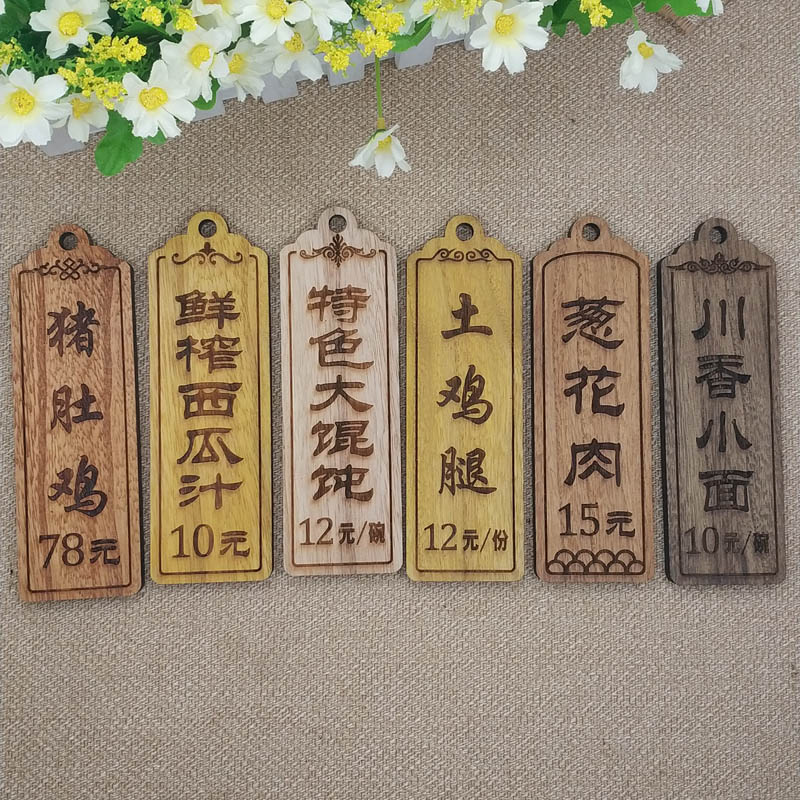 猪肚鸡
78元
鲜榨西瓜汁
10元
特色大馄饨
12元/碗
土鸡腿
12元/份
葱花肉
15元
川香小面
10元/碗